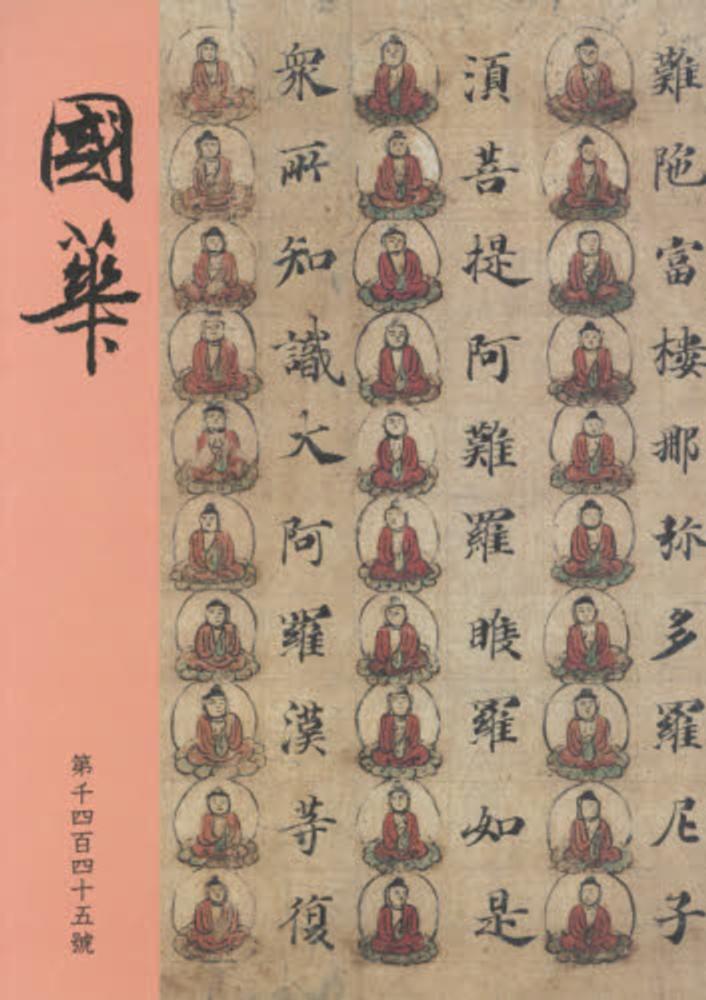 難陁富樓那弥多羅尼子
湏菩提阿難羅睺羅如是
衆所知識大阿羅漢等復
國華
第千四百四十五號